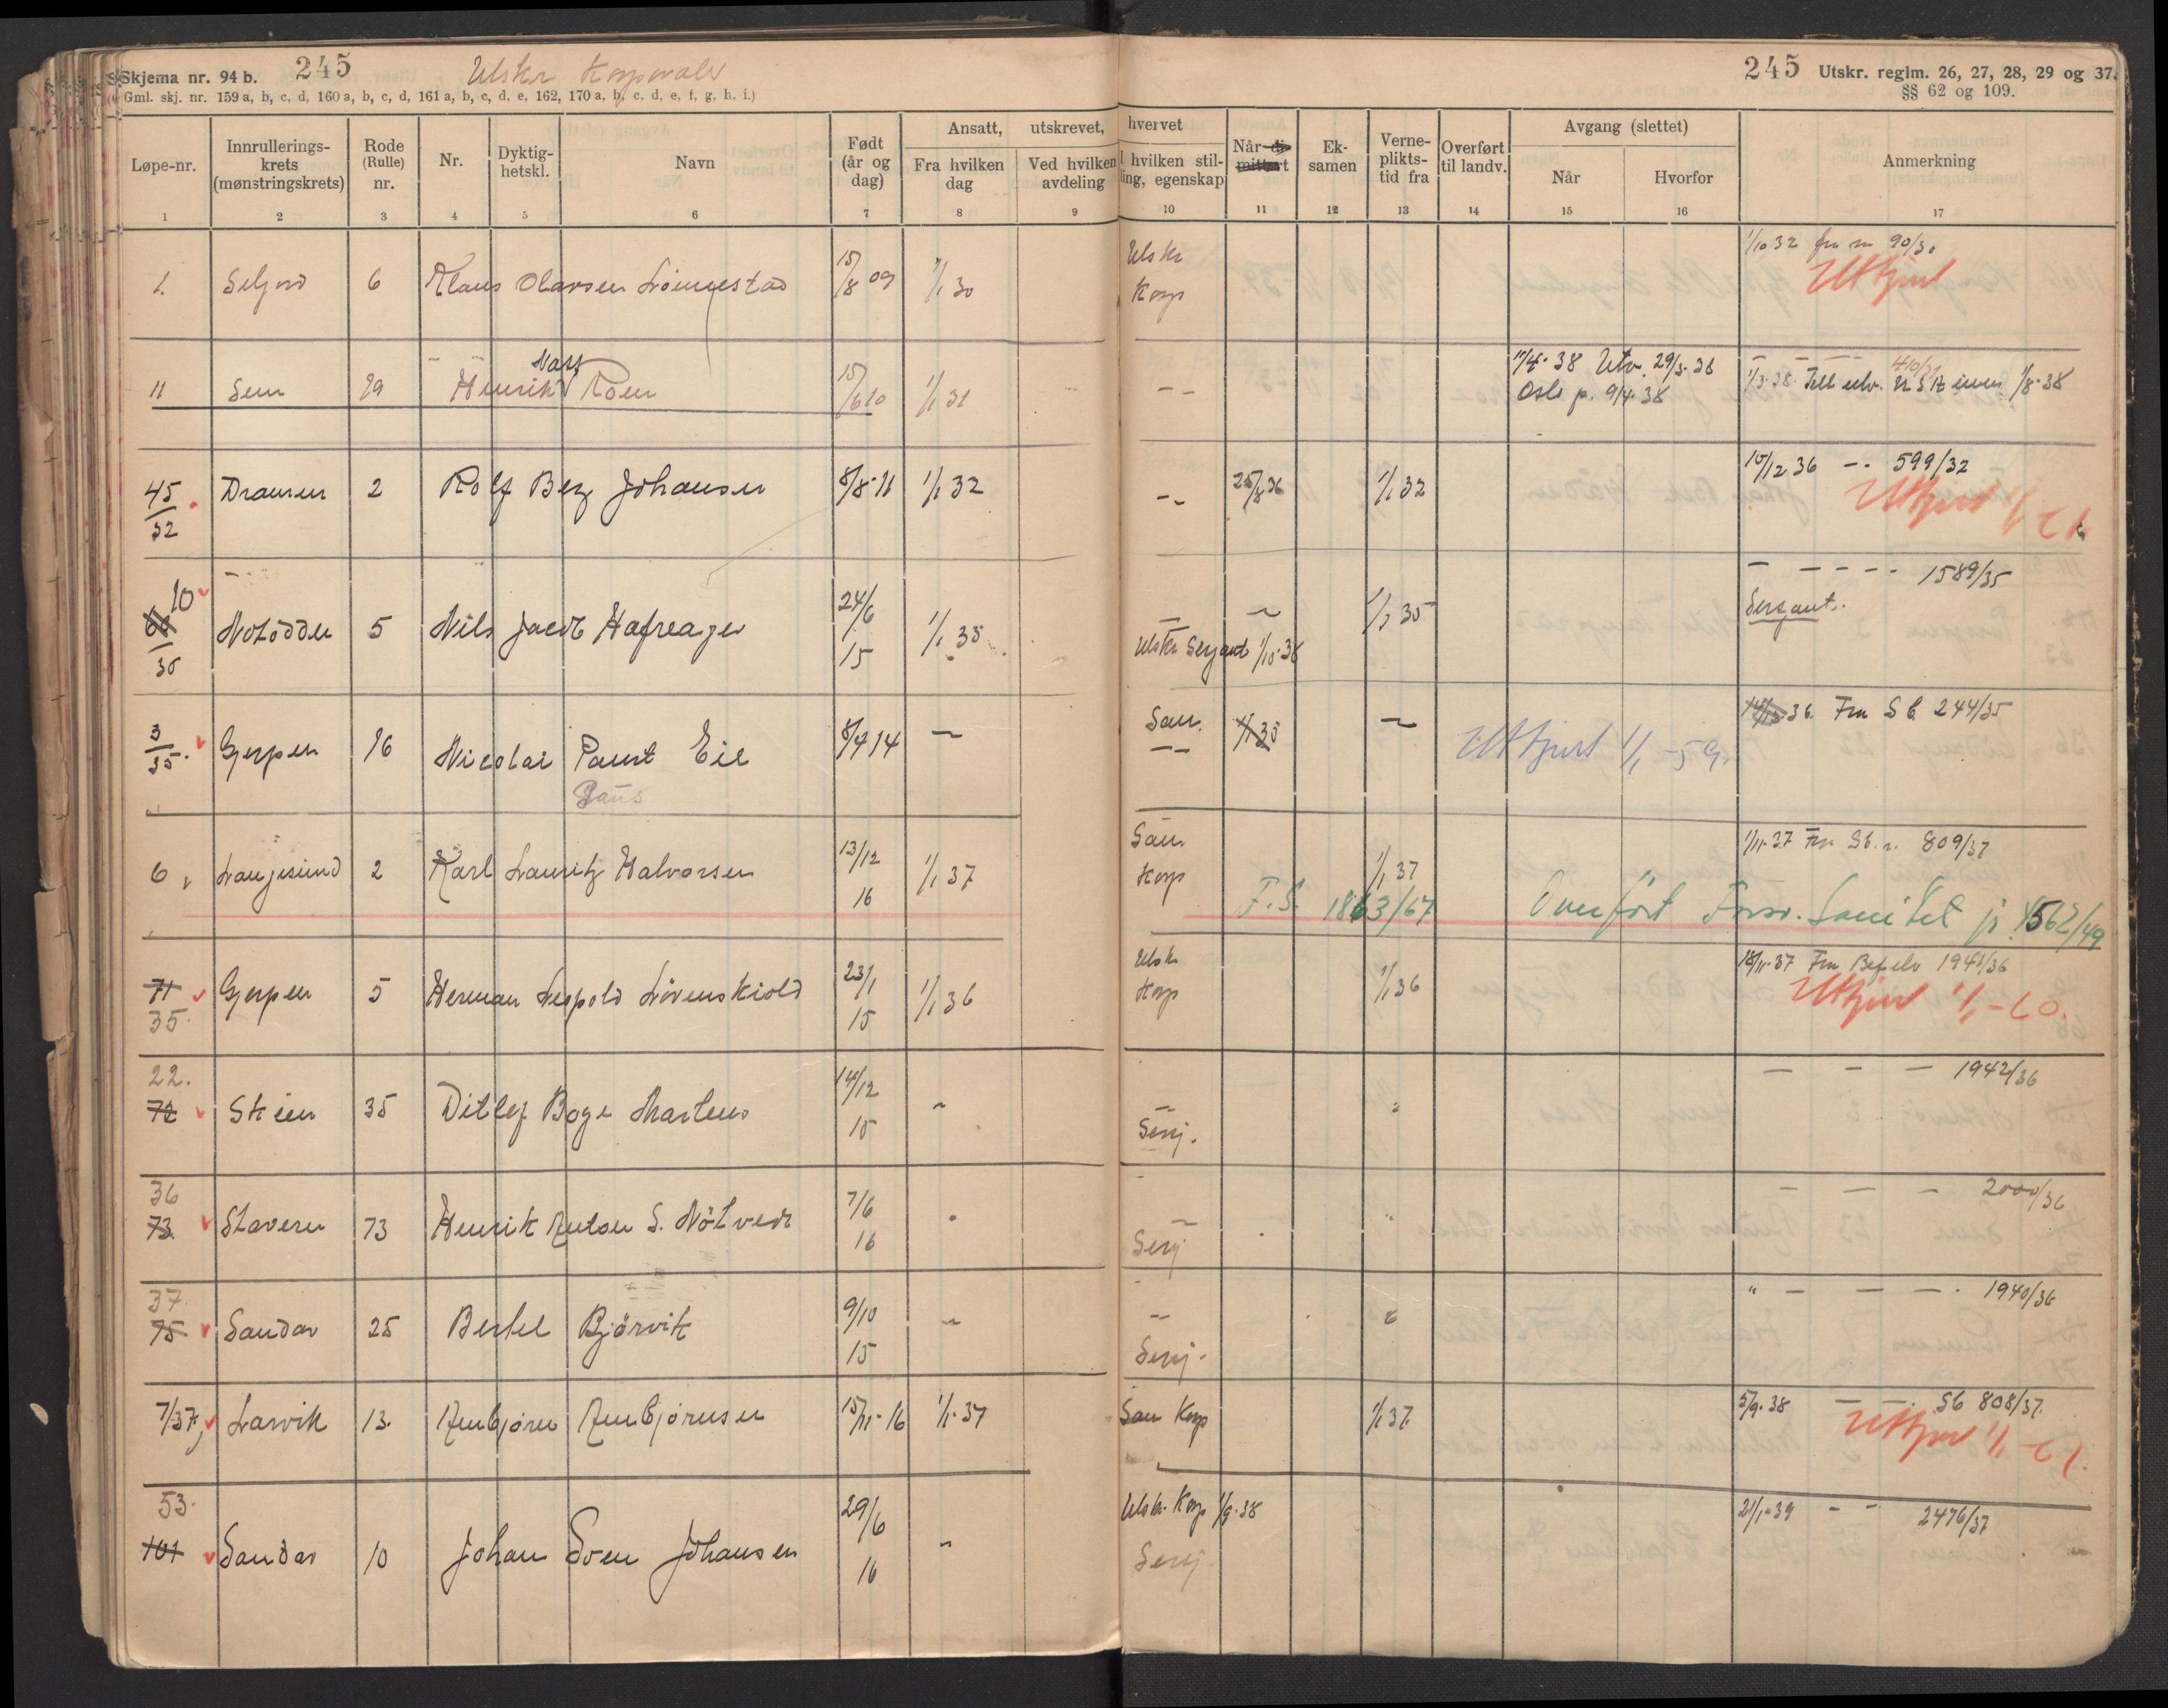 Skjema nr. 94 b. 245 Utskr Korporaler
Gml. skj. nr. 159 a, b, c, d, 160 a, b, c, d, 161 a, b, c, d, e, 162, 170 a, b, c, d, e, f, g, h, i.)
245 Utskr. reglm. 26, 27, 28, 29 og 37.
§§ 62 og 109.
Løpe-nr. Innrullerings-krets (mønstringskrets) Rode (Rulle) nr. Nr. Dyktig-hetskl. Navn Født (år og dag) Ansatt, utskrevet, hvervet
Fra hvilken dag Ved hvilken avdeling I hvilken stil-ling, egenskap Når di-mittert Ek-samen Verne-plikts-tid fra Overført til landv. Avgang (slettet) Når Hvorfor Anmerkning
1 2 3 4 5 6 7 8 9 10 11 12 13 14 15 16 17
1/10 32 fra nr 90/30
1. Seljord 6 Klaus Olavsen Lönnestad 15/8 09 1/1 30 Utskr Korp Utkjent
11 Sem 19 Henrik Mats Roer 15/6 10 1/1 31 — — 11/4-38 Utv. 29/3-38 Oslo p. 9/4-38
410/31
1/3-38. Till utv. 1/8-38
45/32 Dramen 2 Rolf Berg Johansen 8/8-11 1/1 32 — 25/8 36 1/1 32 15/12 36 -- 599/32
Utkjent 1/1-61
10 /35 Notodden 5 Nils Jacob Hafreager 24/6 15 1/1 35 — ~ 1/1 35 — — — 1589/35
Utskr Serjant 1/10-38 Sersjant.
3/35. Gjerpen 16 Nicolai Paust Eie 8/4 14 — San. — 1/1 35 ~ Utkjent 1/1-59. 36. Fra S b 244/35
Paus
6 Langesund 2 Karl Lauritz Halvorsen 13/12 16 1/1 37 San. Korp 1/1 37 1/11-37 Fra Sb. n. 809/37
F.S. 1863/67 Overført Forsv. Sanitet jr. 4562/49
71/35. Gjerpen 5 Herman Leopold Lövenskiold 23/1 15 1/1 36 Utskr Korp 1/1 36 18/11-37 Fra Befelv 1941/36
Utkjent 1/1-60.
22. 72 Skien 35 Ditlef Boge Martens 14/12 15 ~ — Serj. — — — 1942/36
36 73 Stavern 73 Henrik Anton S. Nötvedt 7/6 16 — Serj — — — 2000/36
37. 75 Sandar 25 Bertel Bjørvik 9/10 15 ~ — Serj. " — — — 1940/36
7/37, Larvik 13. Arnbjörn Arnbjörnsen 15/11-16 1/1-37 San Korp 1/1 37. 5/9-38 — —. Sb 808/37.
Utkjent 1/1-61.
53. 101 Sandar 10 Johan Sven Johansen 29/6 16 ~ Utskr. Korp 1/9-38 21/1-39 — — 2476/37
Serj.